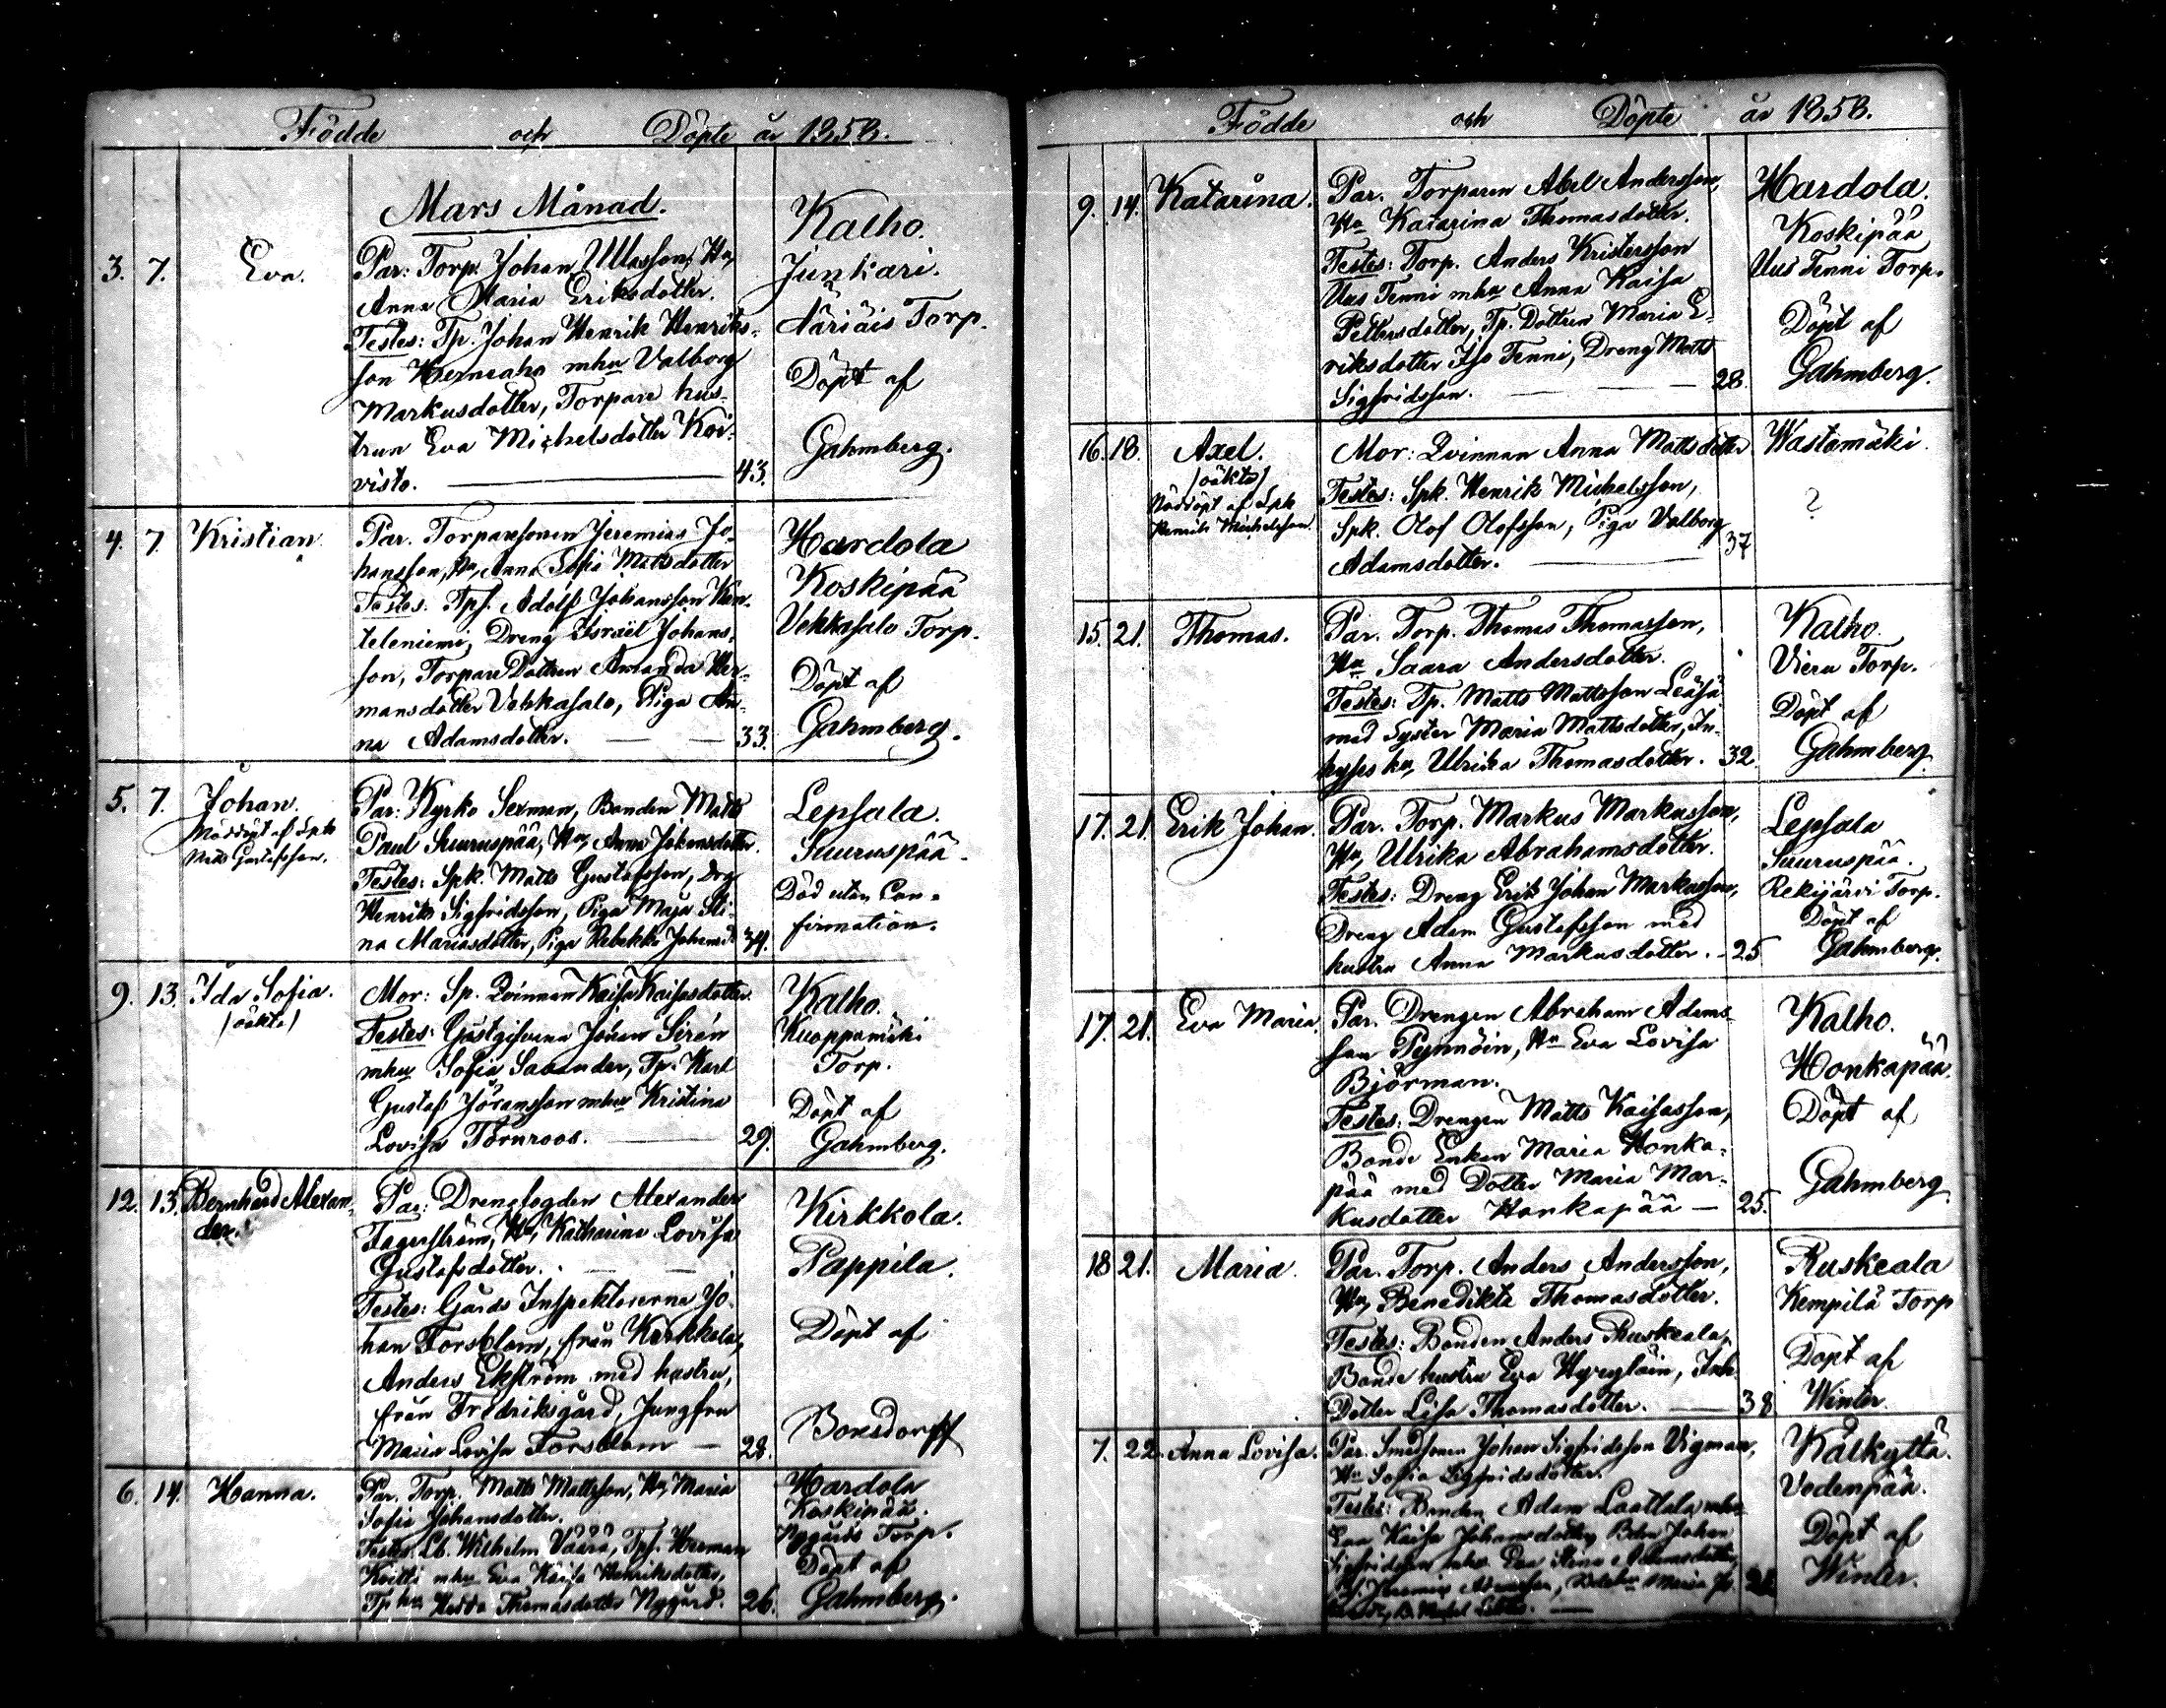 Födde och Döpte år 1858.
Mars Månad.
3. 7. Eva.
Par: Torp. Johan Ullasson, Hu,
Anna Maria Eriksdotter.
Testes: Tp. Johan Henrik Henriks-
son Herneaho mhu Valborg
Markusdotter, Torpare hus-
trun Eva Michelsdotter Koi-
visto. 43.
Kalho.
Junkari.
Näriäis Torp.
Döpt af
Gahmberg.
4. 7. Kristian
Par. Torparesonen Jeremias Jo-
hansson, Hu, Anna Sofia Mattsdotter
Testes: Tps. Adolf Johansson Kan-
teleniemi, Dreng Israel Johans-
son, Torpare Dottren Amanda Her-
mansdotter Vehkasalo, Piga An-
na Adamsdotter. 33.
Hardola
Koskipää
Vehkasalo Torp.
Döpt af
Gahmberg.
5. 7. Johan.
Nöddöpt af Spk
Matts Gustafsson.
Par: Kyrko Sexman, Bonden Matts
Paul Suuruspää, Hu, Anna Johansdotter.
Testes: Spk. Matts Gustafsson, Drg
Henrik Sigfridsson, Piga Maja Sti-
na Mariasdotter, Piga Rebekka Johansd. 34.
Lepsala.
Suuruspää.
Död utan Con-
firmation.
9. 13. Ida Sofia.
/oäkta/
Mor: Sp. Qvinnan Kaisa Kaisasdotter.
Testes: Gästgifvaren Johan Sirén
mhu Sofia Salander, Tp. Karl
Gustaf Jöransson mhu Kristina
Lovisa Törnroos. 29.
Kalho.
Kuoppamäki
Torp.
Döpt af
Gahmberg.
12. 13. Bernhard Alexan-
der.
Par: Drengfogden Alexander
Fagerström, Hu, Katharina Lovisa
Gustafsdotter.
Testes: Gårds Inspektorerne Jo-
han Forsblom, från Kirkkola,
Anders Ekström med hustru,
från Fredriksgård, Jungfru
Maria Lovisa Forsblom 28.
Kirkkola.
Pappila.
Döpt af
Bonsdorff
6. 14. Hanna.
Par. Torp. Matts Mattsson, Hu, Maria
Sofia Johansdotter.
Testes: Lb. Wilhelm Vaara, Tps. Herman
Koitti mhu Eva Kaisa Henriksdotter,
Tp hu Hedda Thomasdotter Nygård. 26.
Hardola
Koskipää.
Nygårds Torp.
Döpt af
Gahmberg.
Födde och Döpte år 1858.
9. 14. Katarina.
Par. Torparen Abel Andersson,
Hu Katarina Thomasdotter.
Testes: Torp. Anders Kristersson
Uus Tenni mhu Anna Kaisa
Pettersdotter, Tp. Dottren Maria E-
riksdotter Iso Tenni, Dreng Matts
Sigfridsson. 28.
Hardola.
Koskipää
Uus Tenni Torp.
Döpt af
Gahmberg.
16. 18. Axel.
/oäkta/
Nöddöpt af Spk
Henrik Michelsson.
Mor: Qvinnan Anna Mattsdotter
Testes: Spk. Henrik Michelsson,
Spk. Olof Olofsson, Piga Valborg
Adamsdotter. 37
Wastamäki.
?
15. 21. Thomas.
Par. Torp. Thomas Thomasson,
Hu Saara Andersdotter.
Testes: Tp. Matts Mattsson
med Syster Maria Mattsdotter, In-
hyses hu, Ulrika Thomasdotter. 32.
Kalho.
Vieru Torp.
Döpt af
Gahmberg.
17. 21. Erik Johan.
Par. Torp. Markus Markusson,
Hu, Ulrika Abrahamsdotter.
Testes: Dreng Erik Johan Markusson,
Dreng Adam Gustafsson med
hustru Anna Markusdotter. 25
Lepsala
Suuruspää.
Rekijärvi Torp.
Döpt af
Gahmberg.
17. 21. Eva Maria.
Par. Drengen Abraham Adams-
son Pynnöin, Hu Eva Lovisa
Björman.
Testes: Drengen Matts Kaisasson,
Bonde Enkan Maria Honka-
pää med Dotter Maria Mar-
kusdotter Honkapää 25.
Kalho.
Honkapää.
Döpt af
Gahmberg.
18 21. Maria.
Par. Torp. Anders Andersson,
Hu, Benedikta Thomasdotter.
Testes: Bonden Anders Ruskeala,
Bonde hustru Eva Hyryläin, Inh.
Dotter Lisa Thomasdotter. 38
Ruskeala
Kempilä Torp
Döpt af
Winter.
7. 22. Anna Lovisa.
Par. Smedsonen Johan Sigfridsson Vigman,
Hu Sofia Sigfridsdotter.
Testes: Bonden Adam Laattala mhu
Eva Kaisa Johansdotter, Bden Johan
Sigfridsson mhu Eva Stina Adamsdotter,
Jeremias Maria
Kälkyttä.
Vedenpää.
Döpt af
Winter.